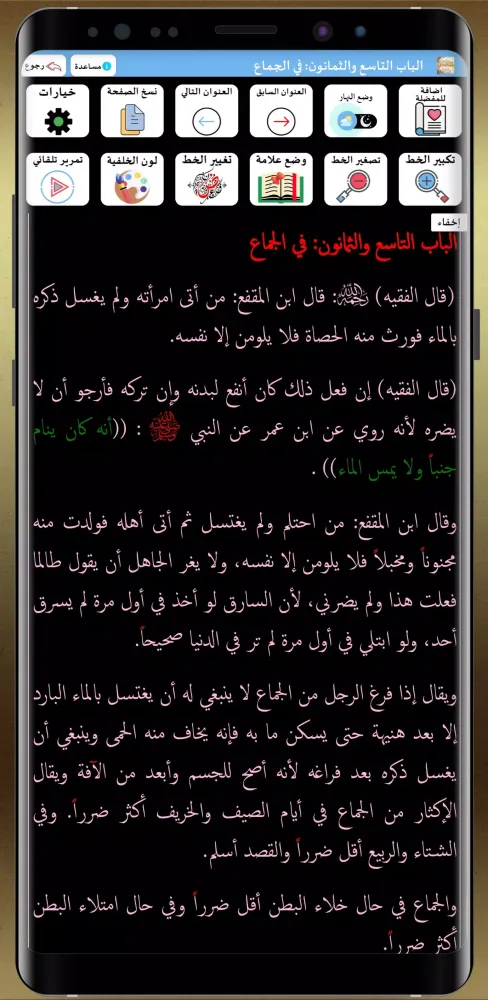 الباب التاسع والثمانون: في الجماع
مساعدة
رجوع
اضافة للمفضلة
وضع النهار
العنوان السابق
العنوان التالي
نسخ الصفحة
خيارات
تكبير الخط
تصغير الخط
وضع علامة
تغيير الخط
لون الخلفية
تمرير تلقائي
إخفاء
الباب التاسع والثمانون: في الجماع
(قال الفقيه) رحمه الله: قال ابن المقفع: من أتى امرأته ولم يغسل ذكره
بالماء فورث منه الحصاة فلا يلومن إلا نفسه.
(قال الفقيه) إن فعل ذلك كان أنفع لبدنه وإن تركه فأرجو أن لا
يضره لأنه روي عن ابن عمر عن النبي ﷺ : ((أنه كان ينام
جنباً ولا يمس الماء)) .
وقال ابن المقفع: من احتلم ولم يغتسل ثم أتى أهله فولدت منه
مجنوناً ومخبلاً فلا يلومن إلا نفسه، ولا يغر الجاهل أن يقول طالما
فعلت هذا ولم يضرني، لأن السارق لو أخذ في أول مرة لم يسرق
أحد، ولو ابتلي في أول مرة لم تر في الدنيا صحيحاً.
ويقال إذا فرغ الرجل من الجماع لا ينبغي له أن يغتسل بالماء البارد
إلا بعد هنيهة حتى يسكن ما به فإنه يخاف منه الحمى وينبغي أن
يغسل ذكره بعد فراغه لأنه أصح للجسم وأبعد من الآفة ويقال
الإكثار من الجماع في أيام الصيف والخريف أكثر ضرراً. وفي
الشتاء والربيع أقل ضرراً والقصد أسلم.
والجماع في حال خلاء البطن أقل ضرراً وفي حال امتلاء البطن
أكثر ضرراً.